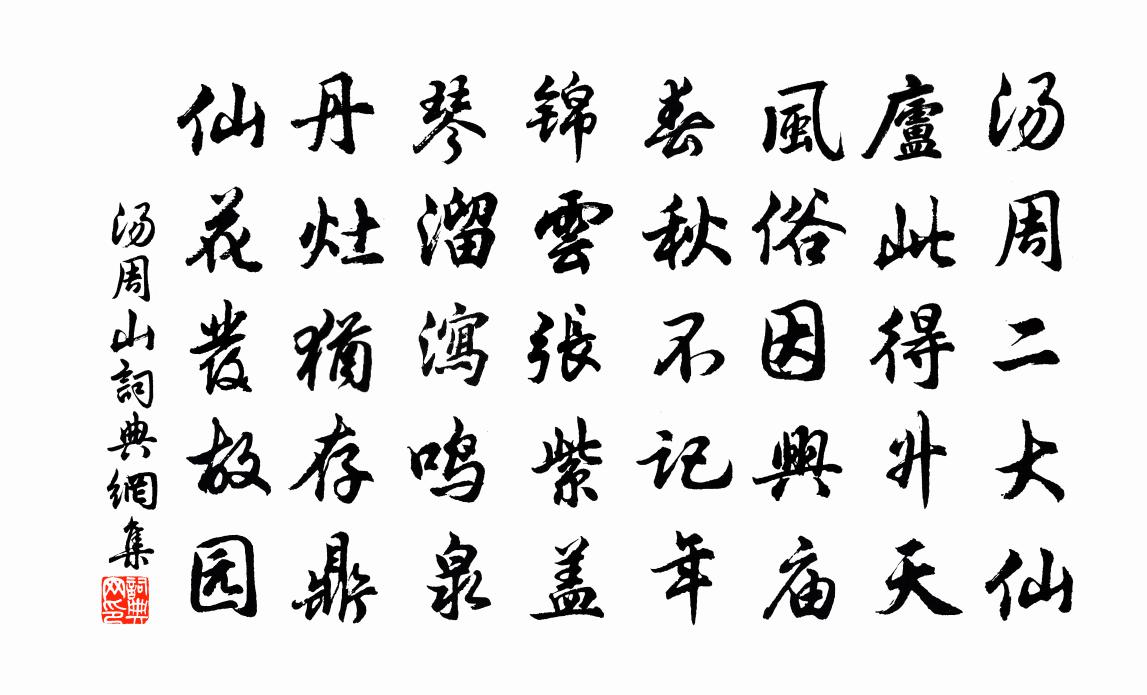 汤周二大仙
廬此得升天
風俗因興庙
春秋不记年
锦雲張紫盖
琴溜瀉鸣泉
丹灶猶存鼎
仙花發故园
汤周山詞典網集
詞典網印